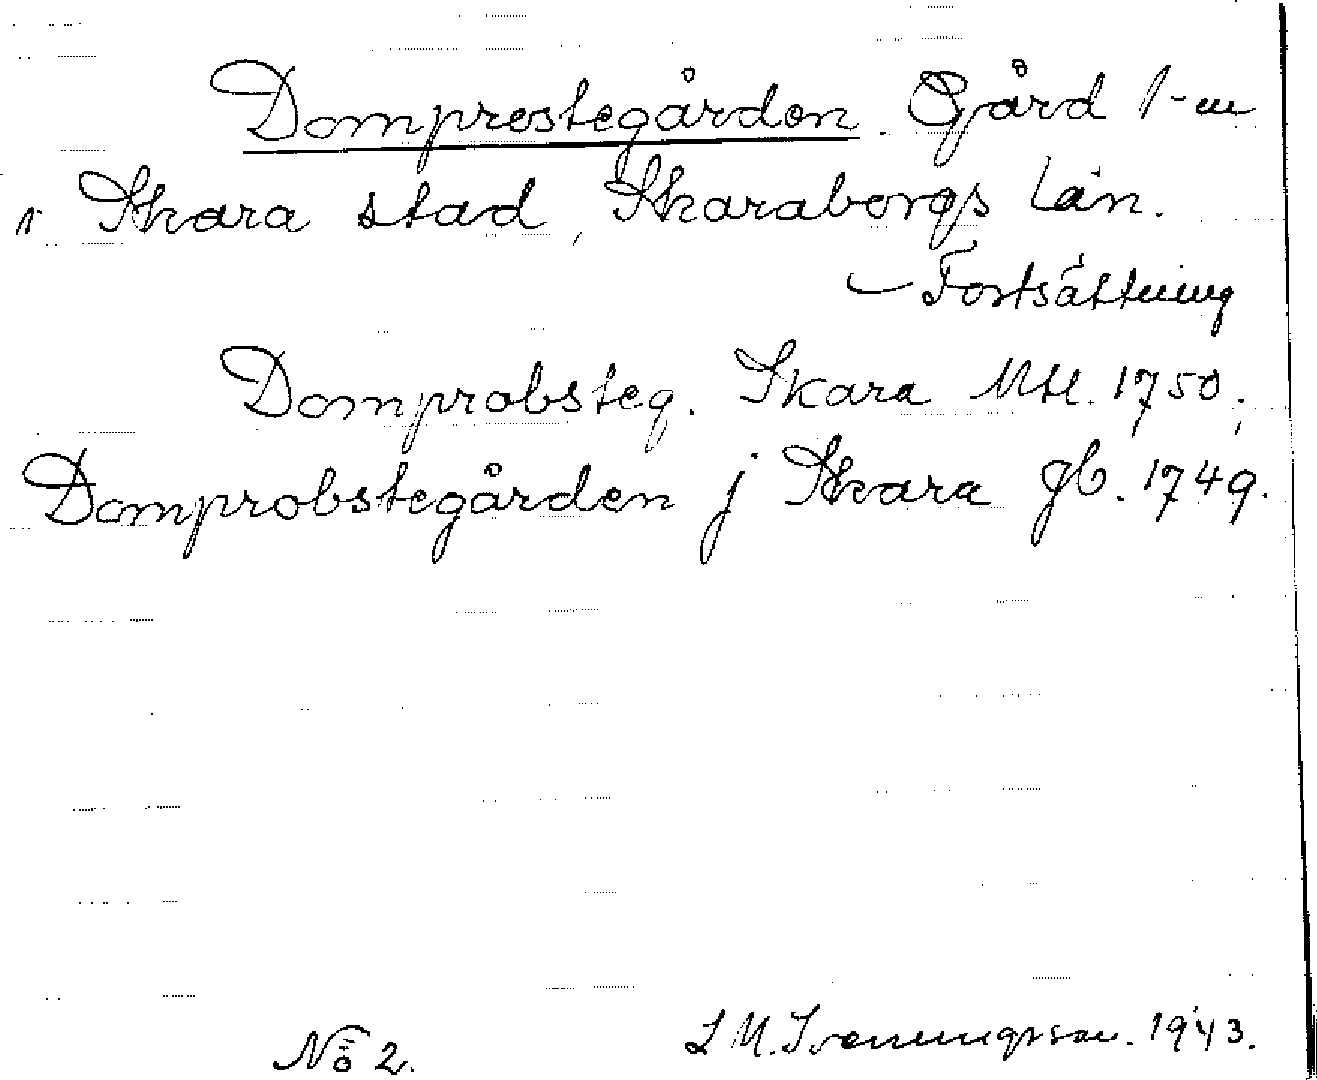 Domprostegården. Gård 1-en
i Skara stad, Skaraborgs län.
– Fortsättning
Domprobsteg. Skara Mtl. 1750;
Domprobstegården j Skara gb. 1749.
No 2.
L M. Svenungsson. 1943.